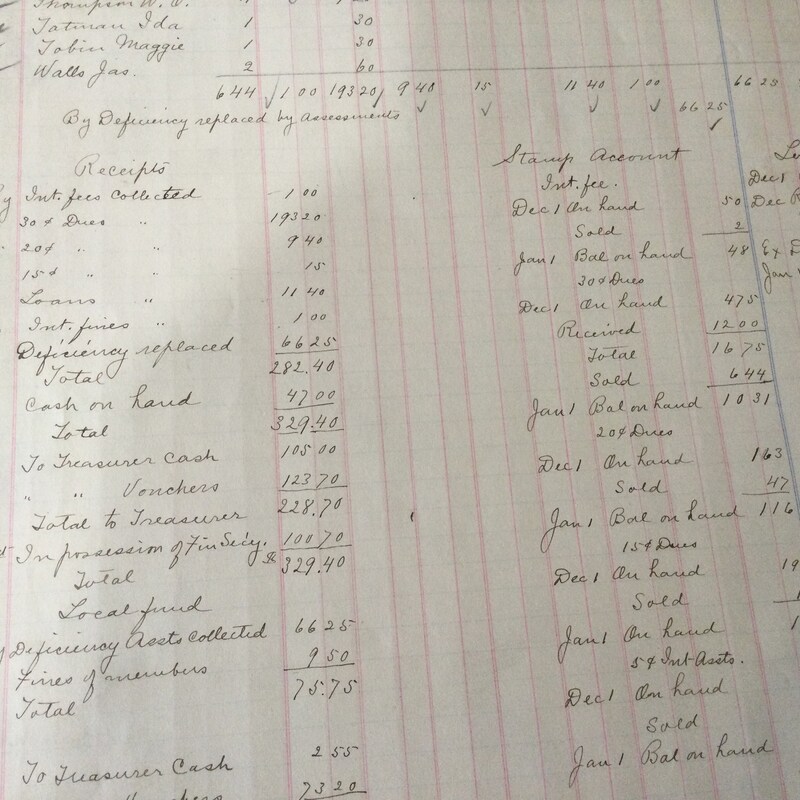 Thompson W. O.
Tatman Ida 1 30
Tobin Maggie 1 30
Walls Jas. 2 60
644 1 00 193 20 9 40 15 11 40 1 00 66 25
By Deficiency replaced by Assessments 66 25
Receipts
Int. fees collected 1 00
30¢ Dues " 193 20
20¢ " " 9 40
15¢ " " 15
Loans " 11 40
Int. fines " 1 00
Deficiency replaced 66 25
Total 282.40
Cash on hand 47 00
Total 329.40
To Treasurer Cash 105 00
" " Vouchers 123 70
Total to Treasurer 228.70
In possession of Fin Sec'y. 100 70
Total 329.40
Local fund
Deficiency Assts collected 66 25
Fines of members 9 50
Total 75.75
To Treasurer Cash 2 55
73 20
Stamp Account
Int. fee.
Dec 1 On hand 50
Sold 2
Jan 1 Bal on hand 48
30¢ Dues
Dec 1 On hand 475
Received 1200
Total 1675
Sold 644
Jan 1 Bal on hand 1031
20¢ Dues
Dec 1 On hand 163
Sold 47
Jan 1 Bal on hand 116
15¢ Dues
Dec 1 On hand 19
Sold 1
Jan 1 On hand 1
5¢ Int Assts.
Dec 1 On hand
Sold
Jan 1 Bal on hand
Dec 1
Dec
Ex
Jan